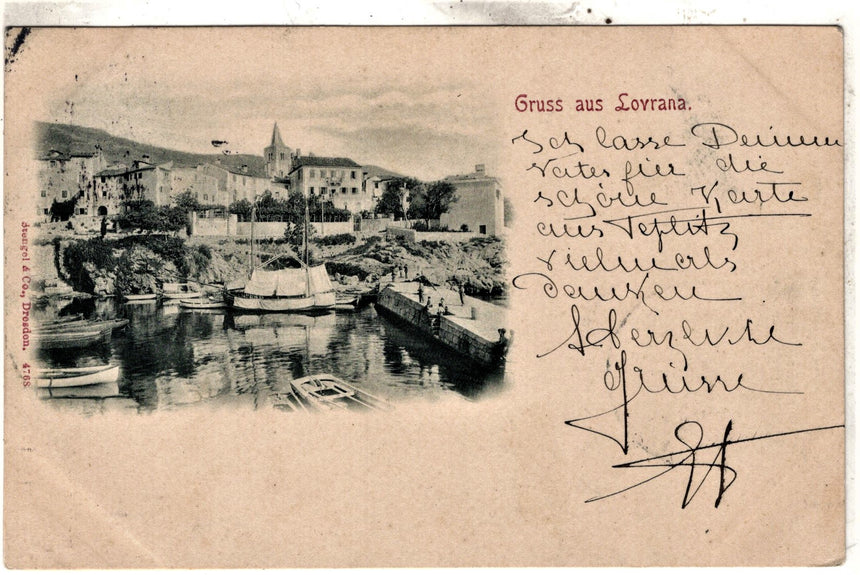 Gruss aus Lovrana.
Ich lasse Deinem
Vater für die
schöne Karte
aus Teplitz
vielmals
danken
Herzliche
Grüsse
Stengel & Co., Dresden. 4768